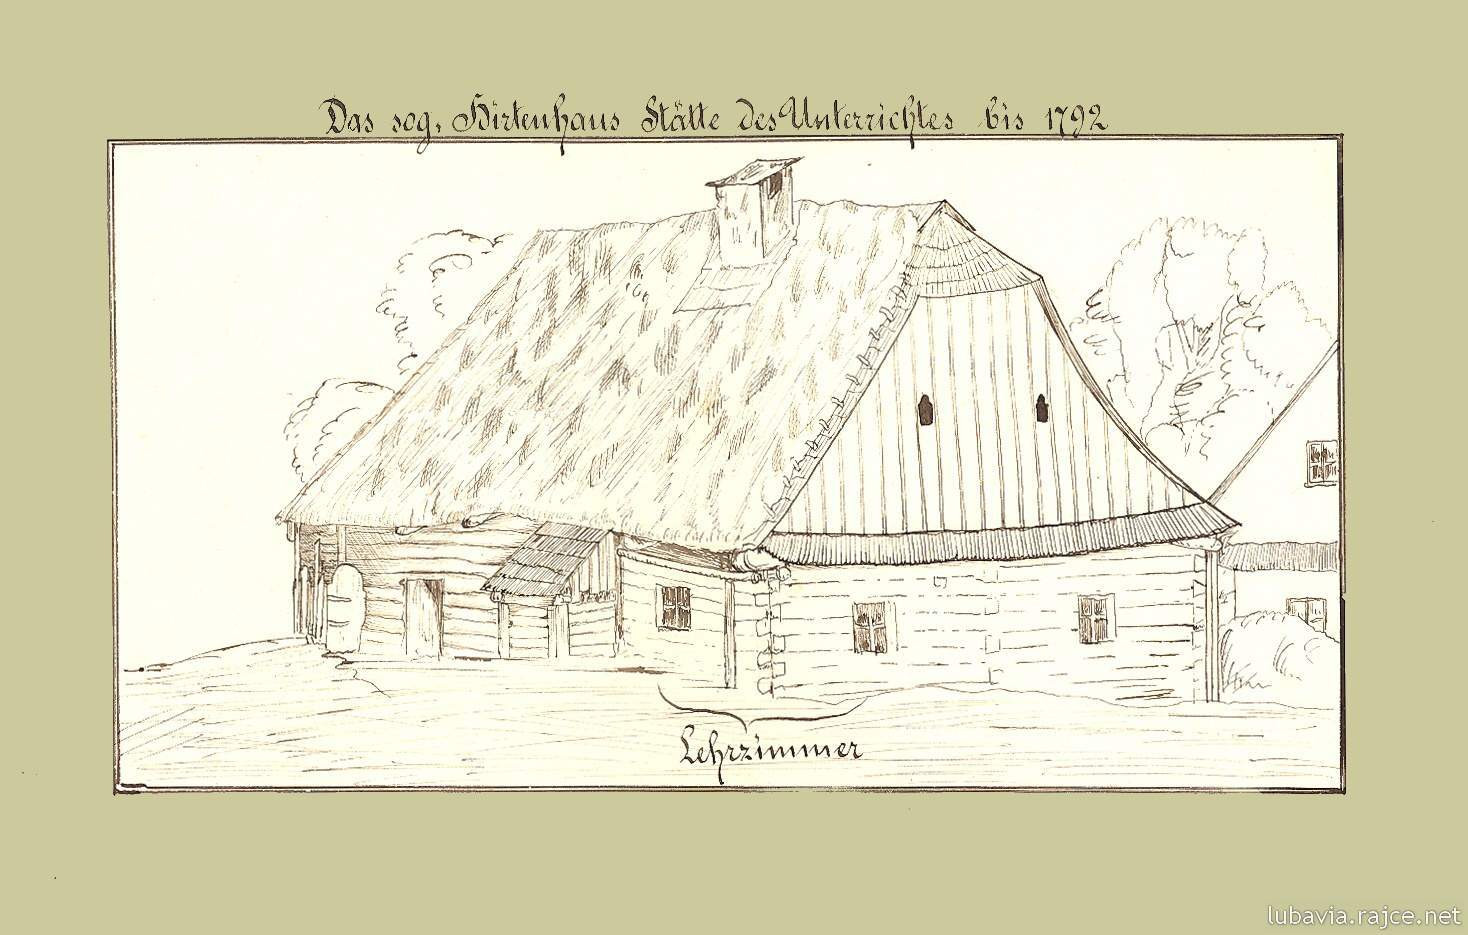 Das sog. Hirtenhaus Stätte des Unterrichtes bis 1792
Lehrzimmer
lubavia.rajce.net